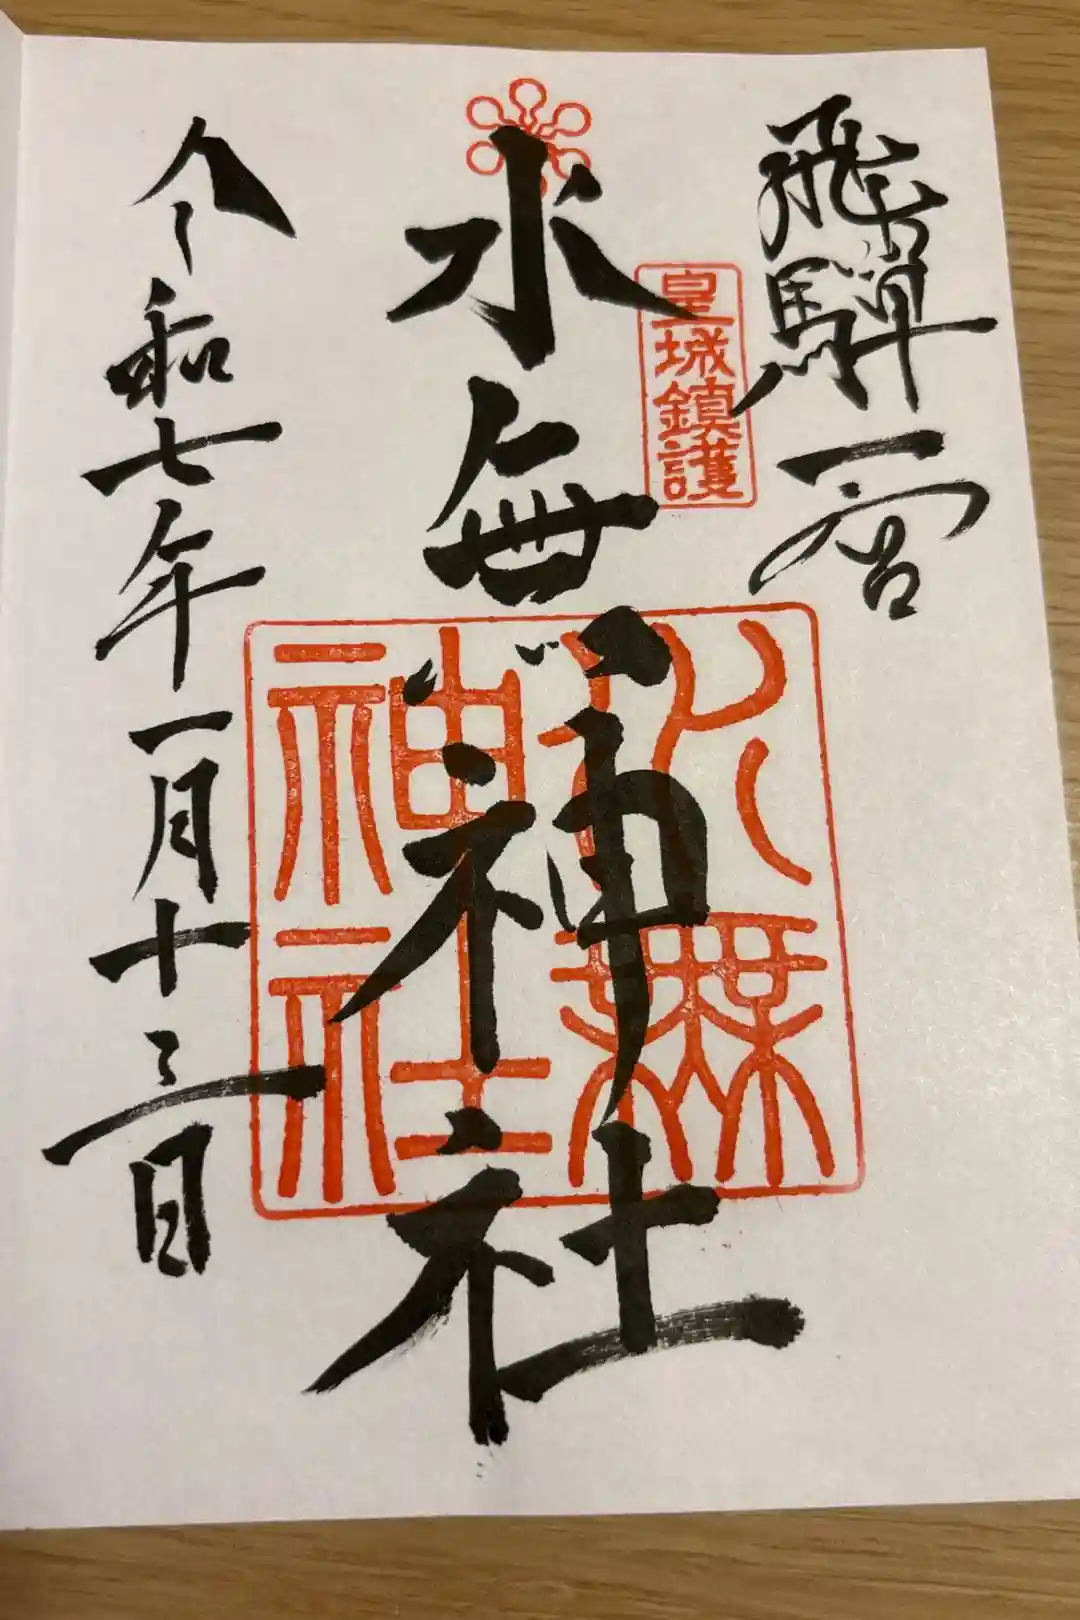 飛騨一宮
皇城鎮護
水無神社
水無
神社
令和七年一月十三日